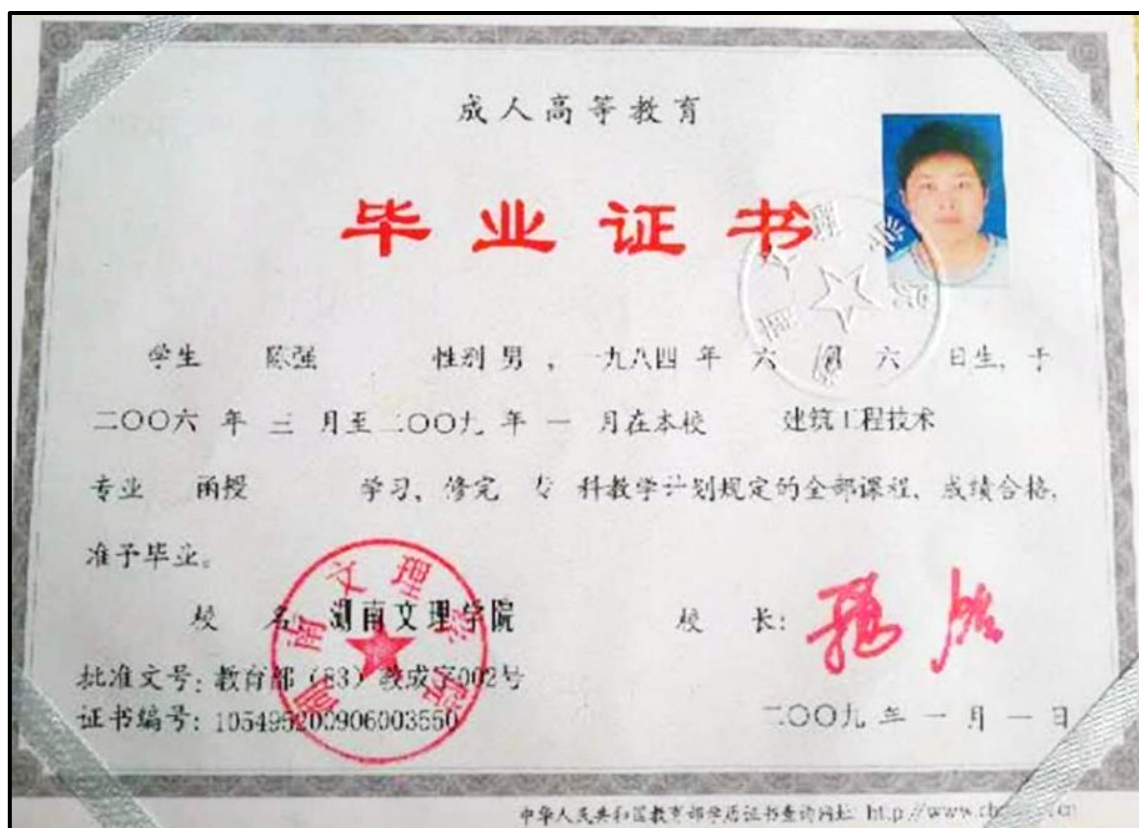 成人高等教育
毕业证书
学生 陈强 性别 男 , 一九八四 年 六 月 六 日生, 于
二〇〇六 年 三 月至 二〇〇九 年 一 月在本校 建筑工程技术
专业 函授 学习、修完 专 科教学计划规定的全部课程、成绩合格,
准予毕业。
校 名: 湖南文理学院 校 长:
湖南文理学院
批准文号: 教育部(83)教成字002号
证书编号: 105495200906003550
二〇〇九 年 一 月 一 日
中华人民共和国教育部学历证书查询网址: http://www.